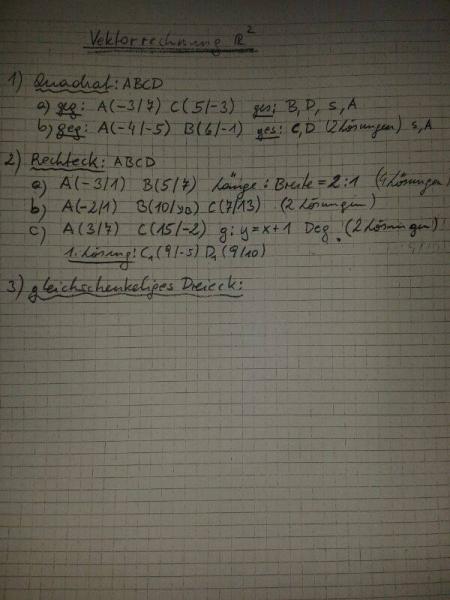 Vektorrechnung ℝ²
1) Quadrat: ABCD
a) geg: A(-3/7) C(5/-3) ges: B, D, s, A
b) geg: A(-4/-5) B(6/-1) ges: C, D (2 Lösungen) s, A
2) Rechteck: ABCD
a) A(-3/1) B(5/7) Länge : Breite = 2:1 (4 Lösungen)
b) A(-2/1) B(10/yB) C(7/13) (2 Lösungen)
c) A(3/7) C(15/-2) g: y=x+1 D∈g. (2 Lösungen)
1. Lösung: C₁(9/-5) D₁(9/10)
3) gleichschenkeliges Dreieck: